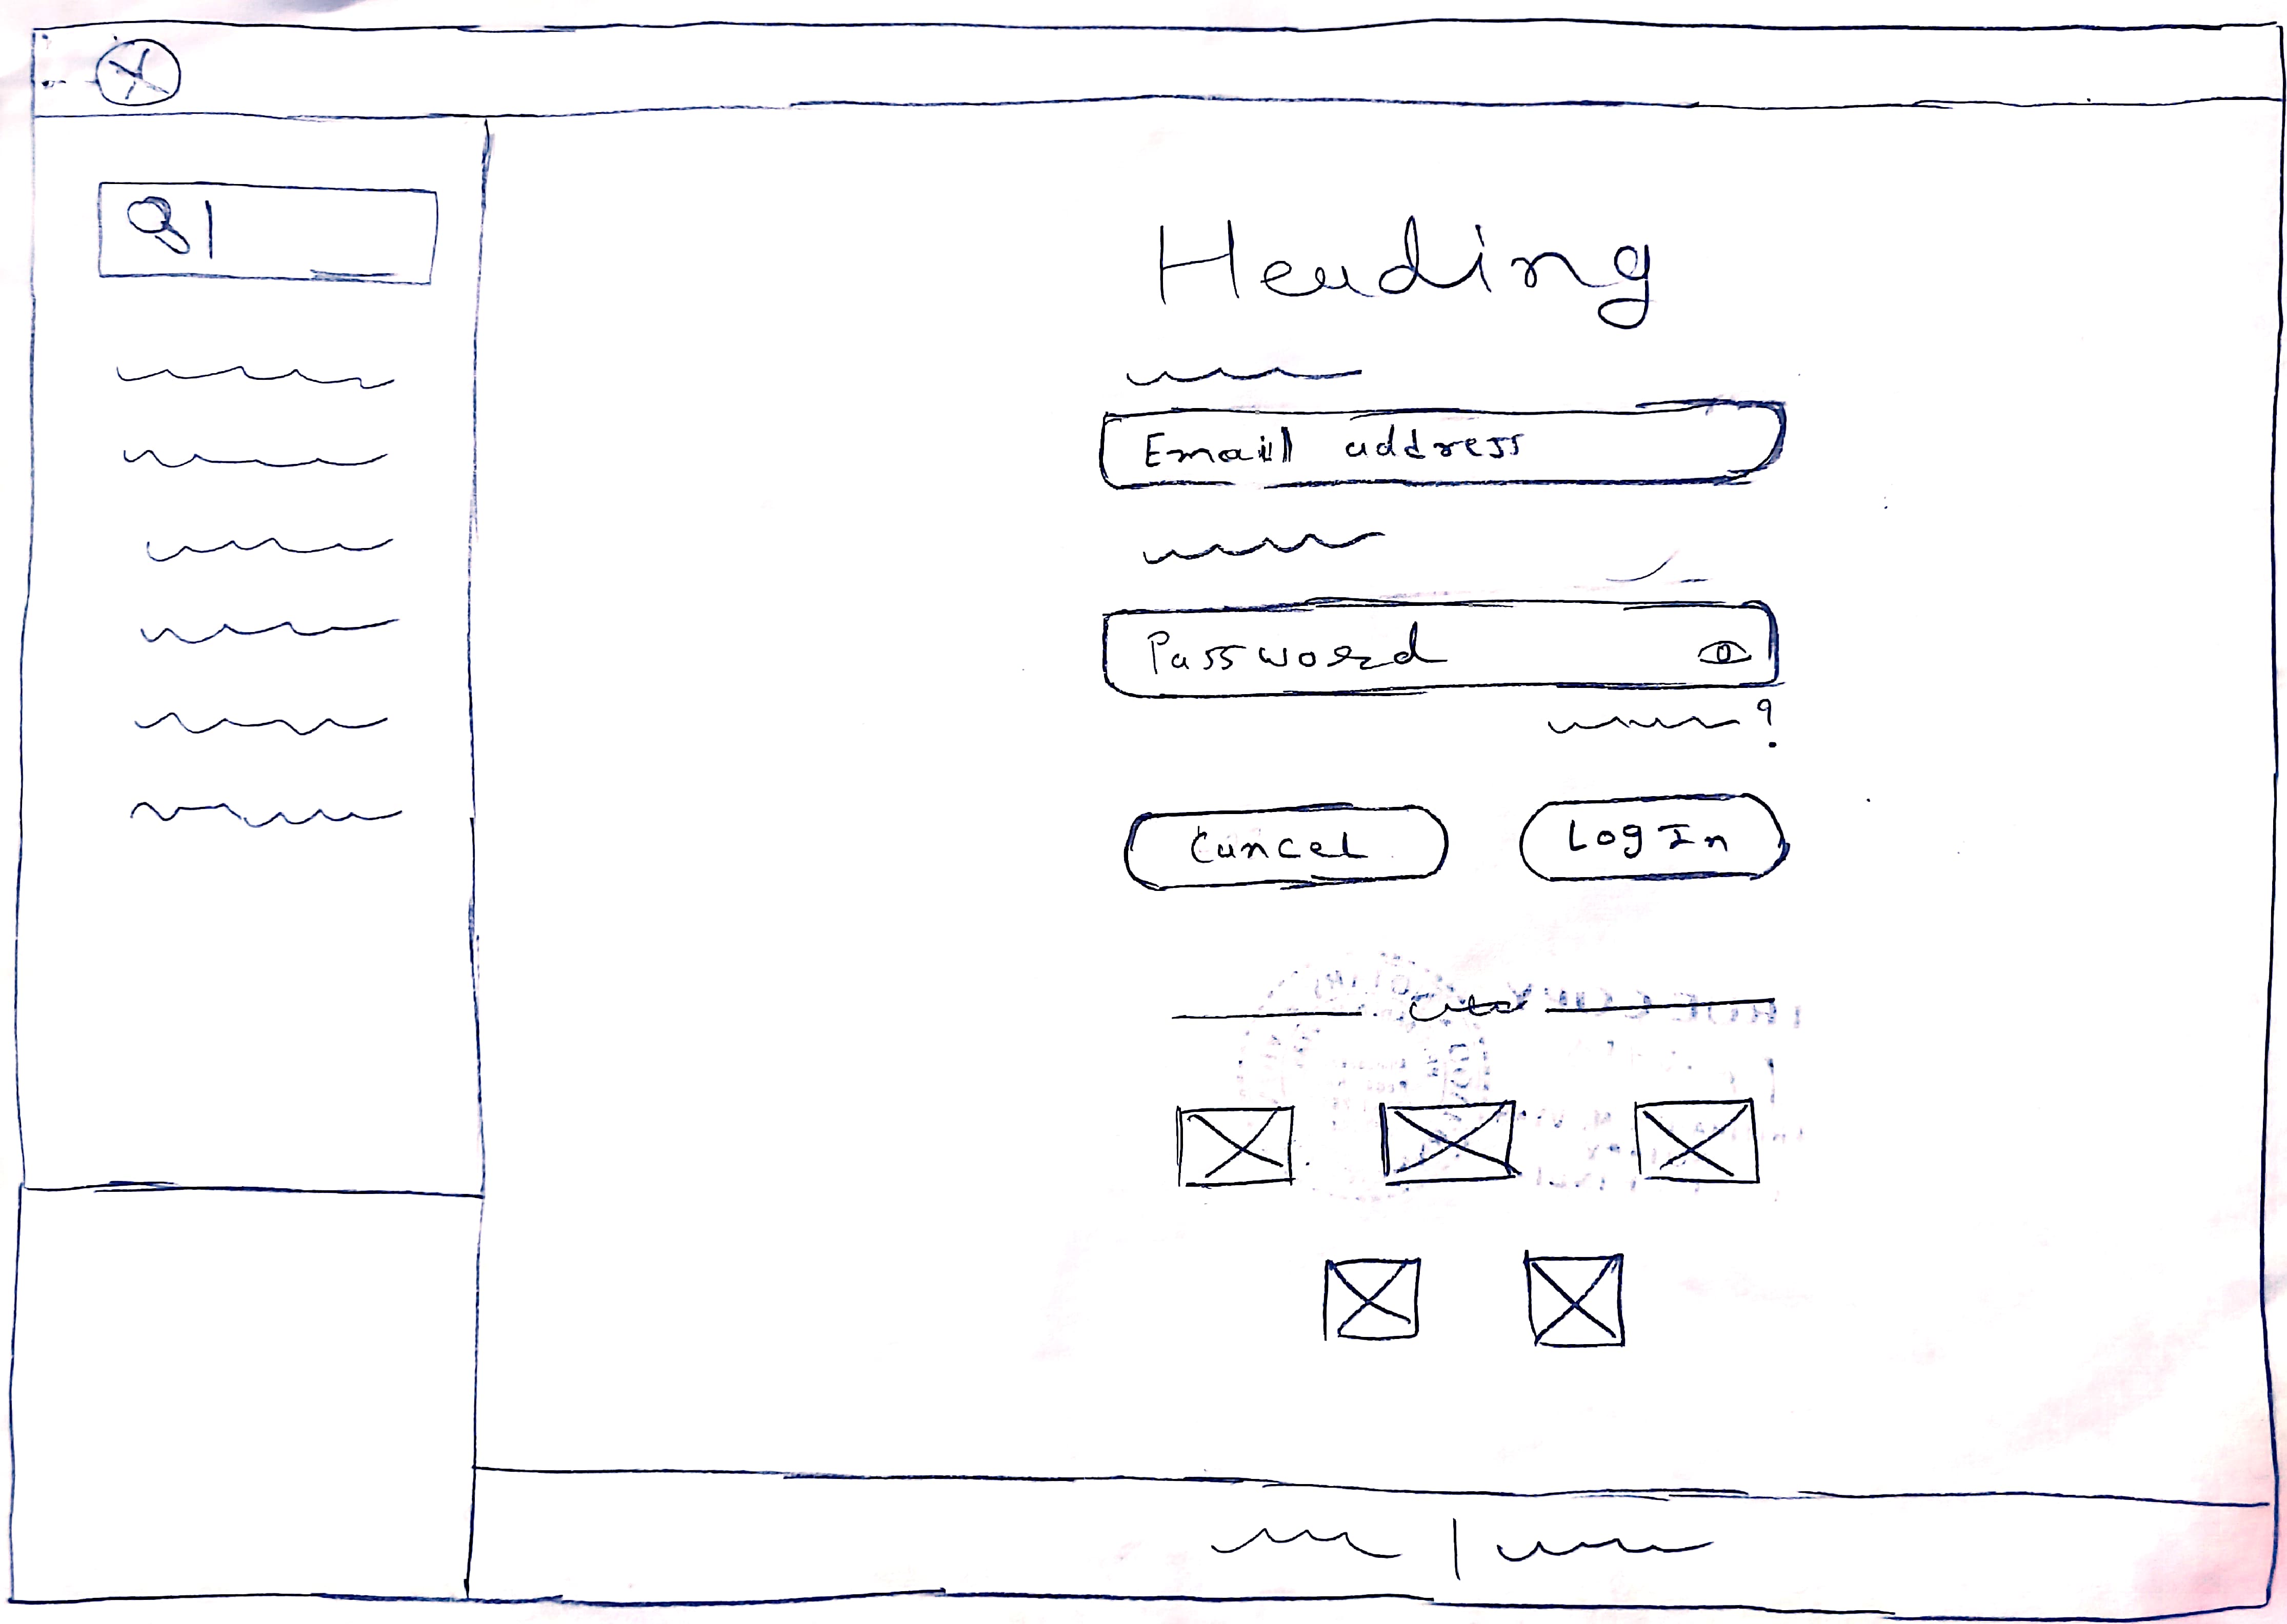 Heading
Email address
Password
?
Cancel
Log In